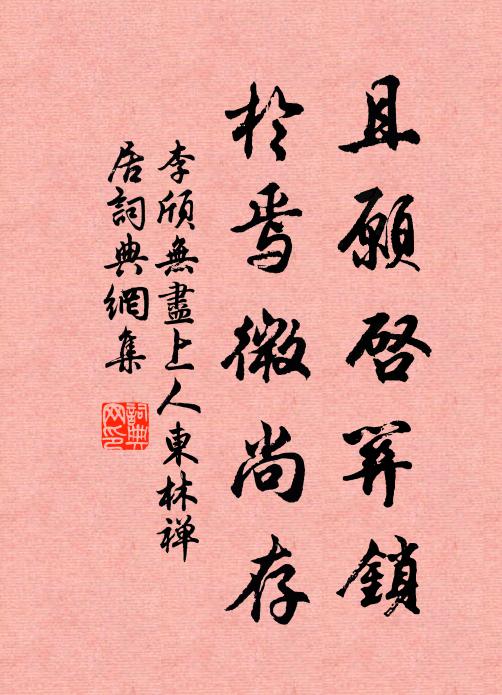 且願啓關鎖
於焉微尚存
李頎無盡上人東林禅
居詞典網集
詞典
网印